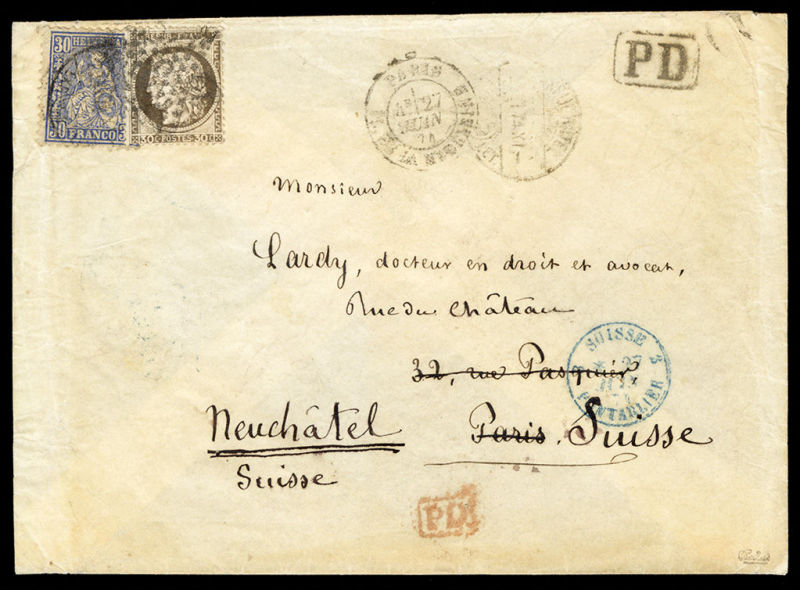 30 HELVETIA 30
FRANCO
30 C · POSTES · 30 C
PARIS
27
74
PD
Monsieur
Lardy, docteur en droit et avocat,
Rue du Château
32, rue Pasquier,
Paris. Suisse
Neuchâtel
Suisse
SUISSE 3
27
PONTARLIER
PD